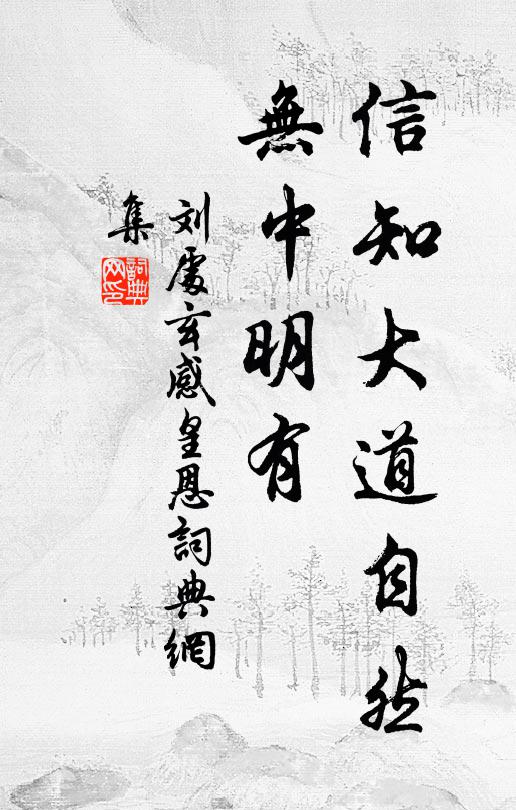 信知大道自然
無中明有
刘處玄感皇恩詞典網
集
詞典
网印